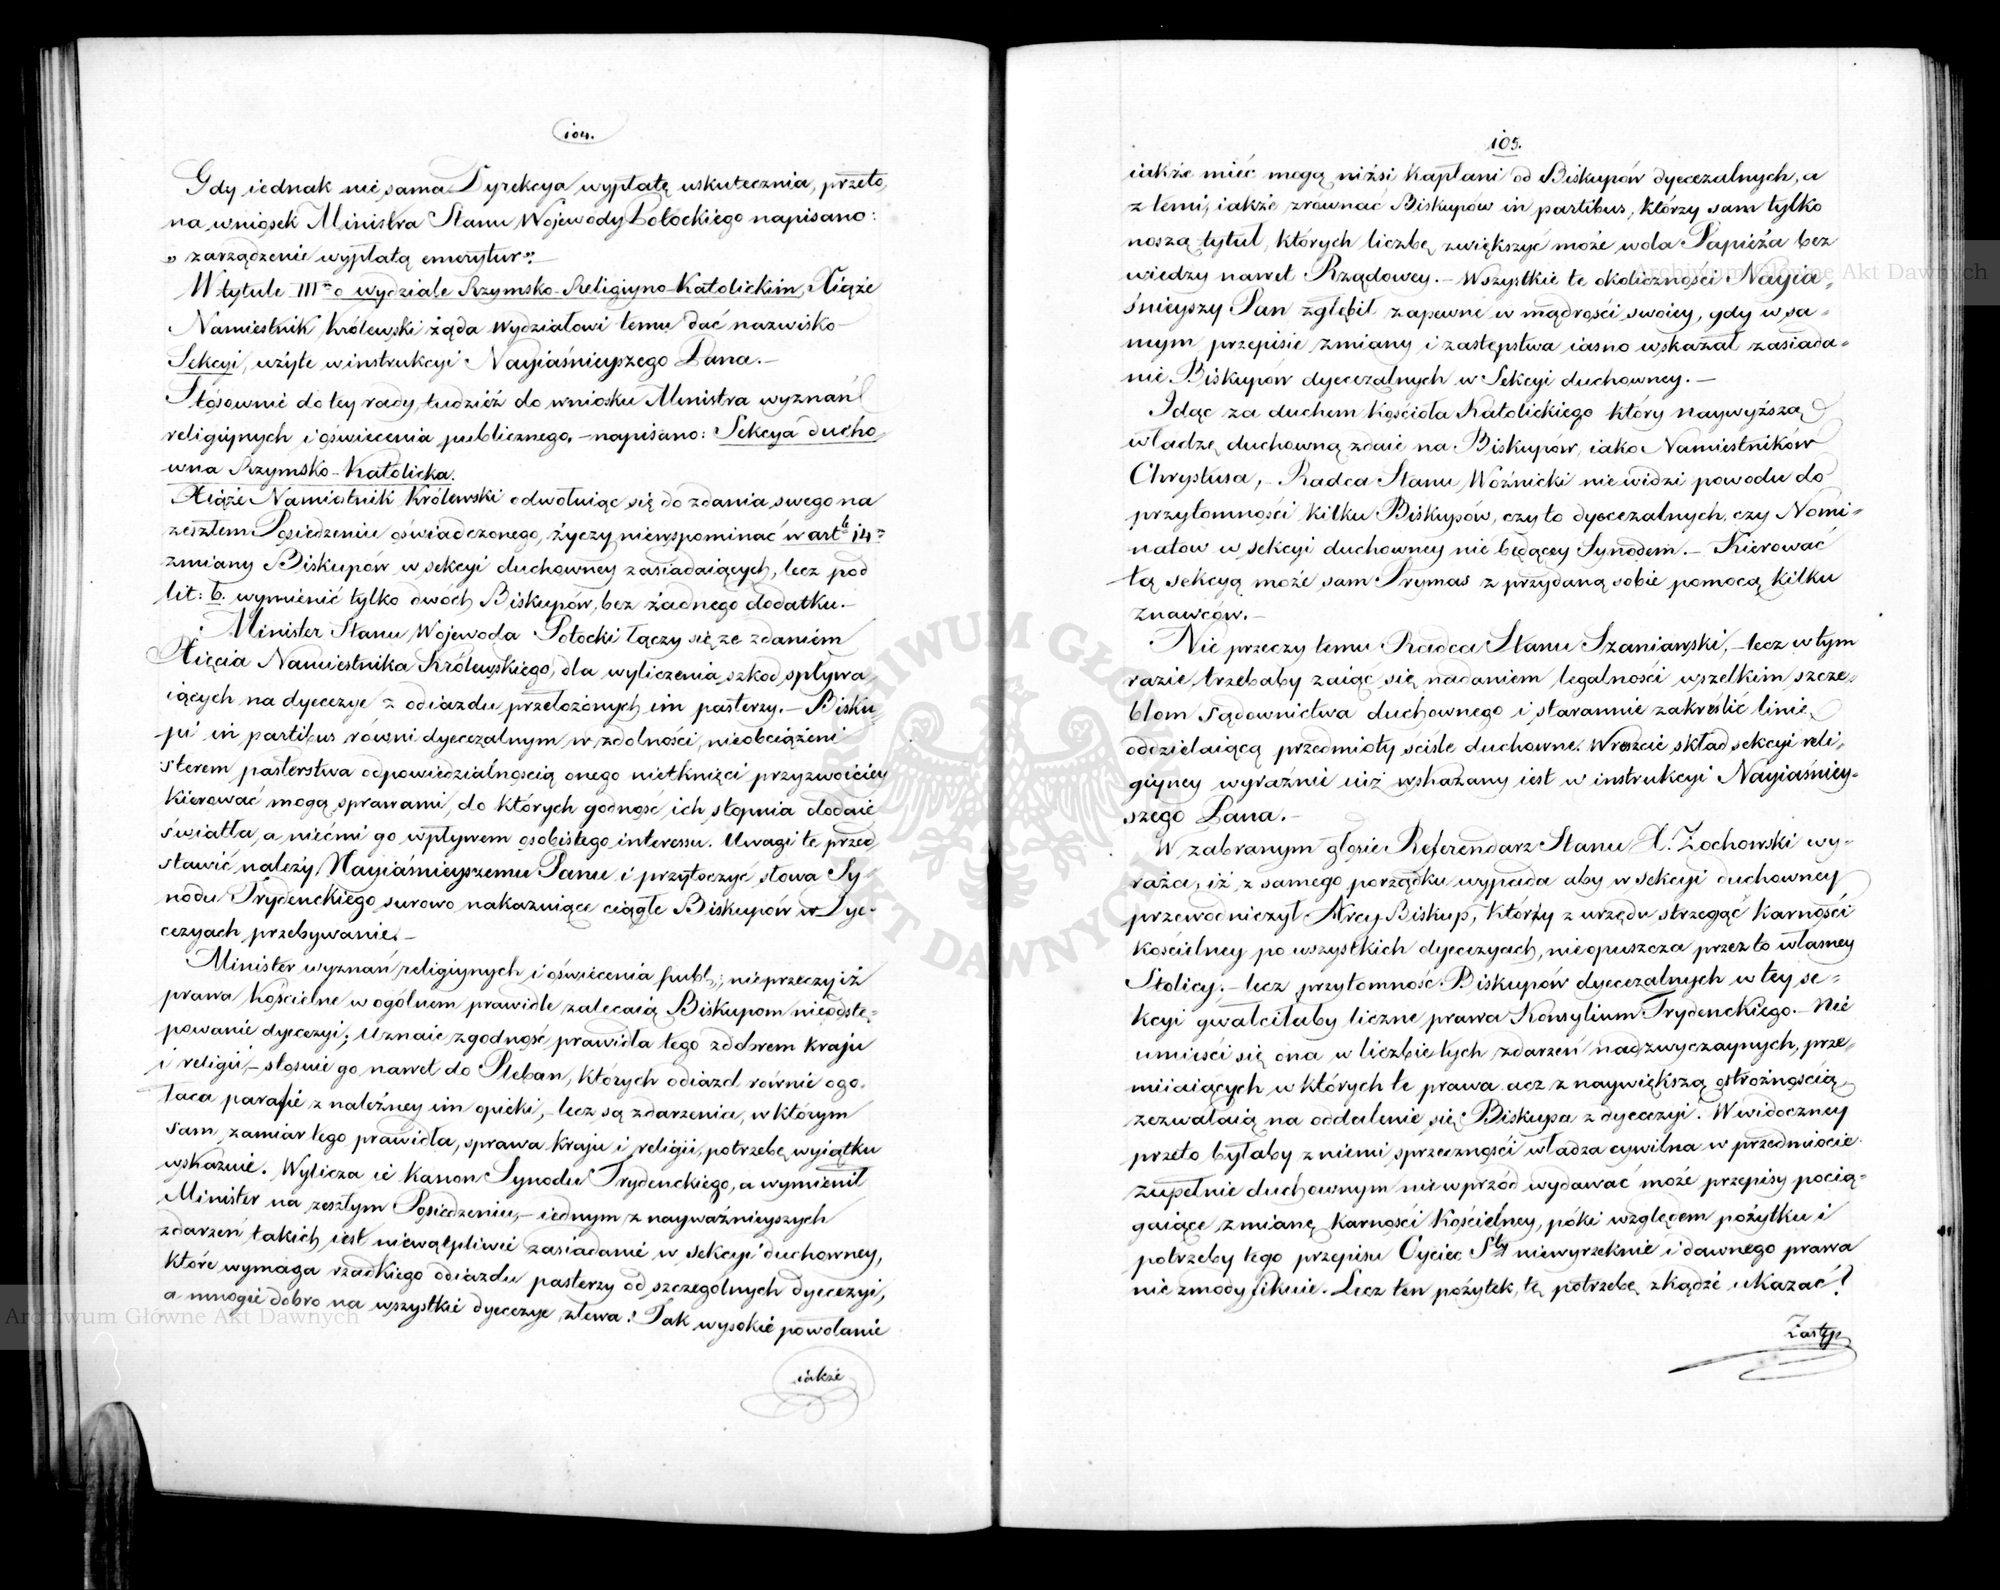 104.
Gdy iednak nie sama Dyrekcya wypłatę uskutecznia, przeto,
na wniosek Ministra Stanu Wojewody Potockiego napisano:
„ zarządzenie wypłatą emerytur". —
W tytule III° o wydziale Rzymsko-Religiyno-Katolickim, Xiąże
Namiestnik Królewski żąda wydziałowi temu dać nazwisko
Sekcyi, użyte w instrukcyi Nayiaśnieyszego Pana. —
Stosownie do tey rady, tudzież do wniosku Ministra wyznań
religiynych i oświecenia publicznego, — napisano: Sekcya ducho
wna Rzymsko-Katolicka.
Xiąże Namiestnik Królewski odwołuiąc się do zdania swego na
zeszłem Posiedzeniu oświadczonego, życzy niewspominać w art. 14
zmiany Biskupów w sekcyi duchowney zasiadaiących, lecz pod
lit: b. wymienić tylko dwóch Biskupów, bez żadnego dodatku. —
Minister Stanu Wojewoda Potocki łączy się ze zdaniem
Xięcia Namiestnika Królewskiego, dla wyliczenia szkod spływa
iących na dyecezye z odiazdu przełożonych im pasterzy. — Bisku-
pi in partibus równi dyecezalnym w zdolności, nieobciążeni
sterem pasterstwa odpowiedzialnością onego nietknięci przyzwoiciey
kierować mogą sprawami, do których godność ich stopnia dodaie
światła, a niećmi go wpływem osobistego interessu. Uwagi te przed
stawić należy Nayiaśnieyszemu Panu i przytoczyć słowa Sy-
nodu Trydenckiego surowo nakazuiące ciągłe Biskupów w Dye-
cezyach przebywanie. —
Minister wyznań religiynych i oświecenia publ:; nieprzeczy iż
prawa Kościelne w ogólnem prawidle zalecaią Biskupom nieodstę-
powanie dyecezyi; Uznaie zgodność prawidła tego z dobrem kraju
i religii, — stosuie go nawet do Pleban, których odiazd równie ogo-
łaca parafie z należney im opieki, — lecz są zdarzenia, w którym
sam zamiar tego prawidła, sprawa kraju i religii, potrzebę wyiątku
wskazuie. Wylicza ie kanon Synodu Trydenckiego, a wymienił
Minister na zeszłym Posiedzeniu, — iednym z nayważnieyszych
zdarzeń takich iest niewątpliwie zasiadanie w sekcyi duchowney,
które wymaga rzadkiego odiazdu pasterzy od szczególnych dyecezyi,
a mnogie dobro na wszystkie dyecezye zlewa! Tak wysokie powołanie
iakże
105.
iakże mieć mogą niżsi Kapłani od Biskupów dyecezalnych, a
z temi, iakże zrównać Biskupów in partibus, którzy sam tylko
noszą tytuł, których liczbę zwiększyć może wola Papieża bez
wiedzy nawet Rządowey. — Wszystkie te okoliczności Nayia-
śnieyszy Pan zgłębił zapewne w mądrości swoiey, gdy w sa-
mym przepisie zmiany i zastępstwa iasno wskazał zasiada-
nie Biskupów dyecezalnych w Sekcyi duchowney. —
Idąc za duchem Kościoła Katolickiego który naywyższą
władzę duchowną zdaie na Biskupów, iako Namiestników
Chrystusa, — Radca Stanu Woźnicki niewidzi powodu do
przytomności kilku Biskupów, czyto dyecezalnych, czy Nomi-
natow w sekcyi duchowney nie będącey Synodem. — Kierować
tą sekcyą może sam Prymas z przydaną sobie pomocą kilku
znawców. —
Nie przeczy temu Radca Stanu Szaniawski, — lecz w tym
razie trzebaby zaiąć się nadaniem legalności wszelkim szcze-
blom sądownictwa duchownego i starannie zakreślić linię
oddzielaiącą przedmioty ściśle duchowne. Wreszcie skład sekcyi reli-
giyney wyraźnie iuż wskazany iest w instrukcyi Nayiaśniey-
szego Pana. —
W zabranym głosie Referendarz Stanu X. Zochowski wy-
raża, iż z samego porządku wypada aby w sekcyi duchowney
przewodniczył Arcy Biskup, który z urzędu strzegąc karności
kościelney po wszystkich dyecezyach, nieopuszcza przez to własney
Stolicy, — lecz przytomność Biskupów dyecezalnych w tey se-
kcyi gwałciłaby liczne prawa Konsylium Trydenckiego. — Nie
umieści się ona w liczbie tych zdarzeń nadzwyczaynych, prze-
miiaiących w których te prawa acz z naywiększą ostrożnością
zezwalaią na oddalenie się Biskupa z dyecezyi. W widoczney
przeto byłaby z niemi sprzeczności władza cywilna w przedmiocie
zupełnie duchownym nie wprzód wydawać może przepisy pocią-
gaiące zmianę karności Kościelney, póki względem pożytku i
potrzeby tego przepisu Oyciec Sty niewyrzeknie i dawnego prawa
nie zmodyfikuie. Lecz ten pożytek, tę potrzebę zkądże ukazać?
Zastęp
ARCHIWUM GŁÓWNE AKT DAWNYCH
Archiwum Główne Akt Dawnych
Archiwum Główne Akt Dawnych